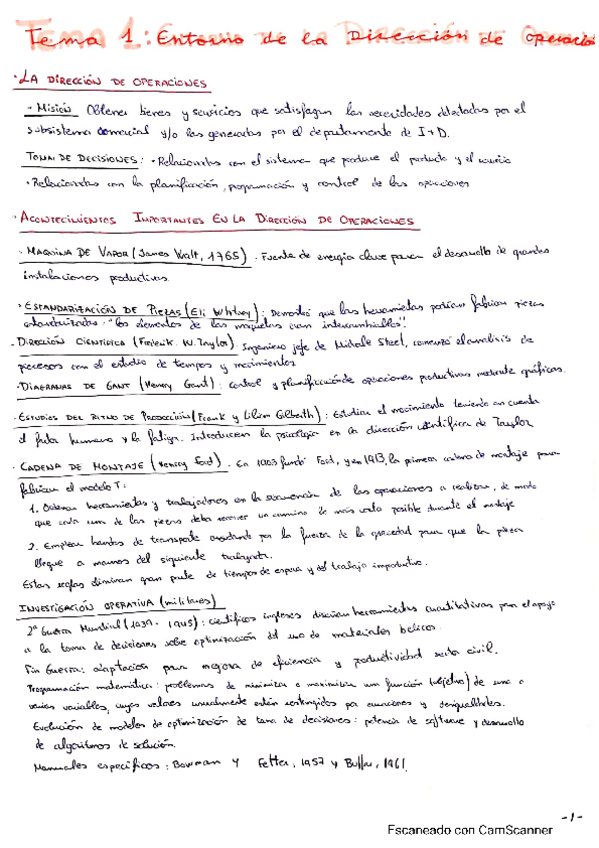 Tema 1: Entorno de la Dirección de Operacio
· LA DIRECCIÓN DE OPERACIONES
- Misión Obtener bienes y servicios que satisfagan las necesidades detectadas por el
subsistema comercial y/o las generadas por el departamento de I+D.
TOMA DE DECISIONES: · Relacionadas con el sistema que produce el producto y el servicio
· Relacionadas con la planificación, programación y control de las operaciones
· ACONTECIMIENTOS IMPORTANTES EN LA DIRECCIÓN DE OPERACIONES
· MAQUINA DE VAPOR (James Watt, 1765). Fuente de energía clave para el desarrollo de grandes
instalaciones productivas.
· ESTANDARIZACIÓN DE PIEZAS (Eli Whitney): Demostró que las herramientas podrían fabricar piezas
estandarizadas. "Los elementos de las maquetas eran intercambiables".
· DIRECCIÓN CIENTIFICA (Frederik. W. Taylor). Ingeniero jefe de Midvale Steel, comenzó el analisis de
procesos con el estudio de tiempos y movimientos
· DIAGRAMAS DE GANT (Henry Gant): Control y planificación de operaciones productivas mediante gráficos.
· ESTUDIOS DEL RITMO DE PRODUCCIÓN (Frank y Lilian Gilberth): Estudian el movimiento teniendo en cuenta
el factor humano y la fatiga. Introducen la psicología en la dirección científica de Taylor
· CADENA DE MONTAJE (Henry Ford). En 1903 fundó Ford, y en 1913, la primera cadena de montaje para
fabricar el modelo T:
1. Ordenar herramientas y trabajadores en la secuencia de las operaciones a realizar, de modo
que cada una de las piezas deba recorrer un camino lo más corto posible durante el montaje
2. Emplear bandas de transporte ayudando por la fuerza de la gravedad para que la pieza
llegue a manos del siguiente trabajador.
Estas reglas eliminan gran parte de tiempos de espera y del trabajo improductivo.
INVESTIGACIÓN OPERATIVA (militares)
2ª Guerra Mundial (1939 - 1945): científicos ingleses diseñan herramientas cuantitativas para el apoyo
a la toma de decisiones sobre optimización del uso de materiales belicos.
Fin Guerra: adaptación para mejora de eficiencia y productividad sector civil.
Programación matemática: problemas de minimizar o maximizar una función (objetivo) de una o
varias variables, cuyos valores usualmente están restringidos por ecuaciones y desigualdades.
Evolución de modelos de optimización de toma de decisiones: potencia de software y desarrollo
de algoritmos de solución.
Manuales especificos: Bowman y Fetter, 1957 y Buffa, 1961.
-1-
Escaneado con CamScanner